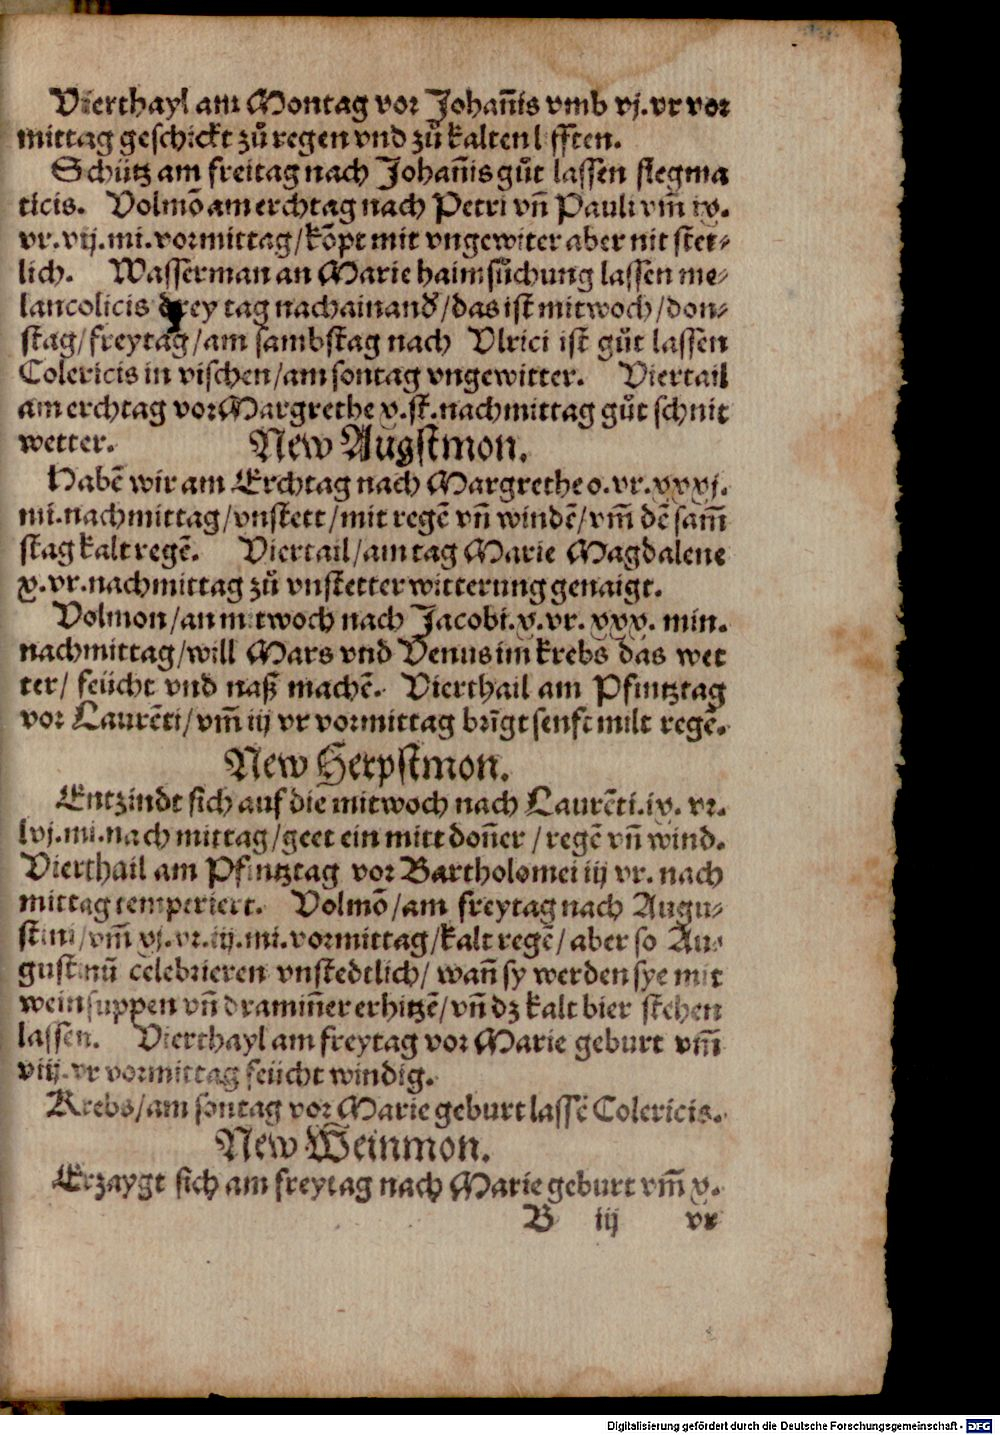 Vierthayl am Montag vor Johan̄is vmb vj. vr vor
mittag geschickt zů regen vnd zů kalten l fften.
Schütz am freitag nach Johan̄is gůt lassen flegma
ticis. Volmō am erchtag nach Petri vn̄ Pauli vm̄ ix.
vr. vij. mi. vormittag/ kōpt mit vngewiter aber nit stet⸗
lich. Wasserman an Marie haimsůchung lassen me⸗
lancolicis drey tag nachainand̄/ das ist mitwoch/ don⸗
stag/ freytag/ am sambstag nach Vlrici ist gůt lassen
Colericis in vischen/ am sontag vngewitter. Viertail
am erchtag vor Margrethe v. st. nachmittag gůt schnit
wetter. New Augstmon.
Habē wir am Erchtag nach Margrethe o. vr. xxxj.
mi. nachmittag/ vnstett/ mit regē vn̄ windē/ vm̄ dē sam̄
stag kalt regē. Viertail/ am tag Marie Magdalene
x. vr. nachmittag zů vnstetter witterung genaigt.
Volmon/ an mitwoch nach Jacobi. x. vr. xxx. min.
nachmittag/ will Mars vnd Venus im krebs das wet
ter/ feücht vnd naß machē. Vierthail am Pfintztag
vor Laurēti/ vm̄ iij vr vormittag brīgt senft milt regē.
New Herpstmon.
Entzindt sich auf die mitwoch nach Laurēti. ix. vr.
lvj. mi. nach mittag/ geet ein mitt don̄er/ regē vn̄ wind.
Vierthail am Pfintztag vor Bartholomei iij vr. nach
mittag temperiert. Volmō/ am freytag nach Augu⸗
stini/ vm̄ vj. vr. iij. mi. vormittag/ kalt regē/ aber so Au⸗
gustinū celebrieren vnstedtlich/ wan̄ sy werden sye mit
weinsuppen vn̄ dramin̄er erhitzē/ vn̄ dz kalt bier stehen
lassen. Vierthayl am freytag vor Marie geburt vm̄
viij. vr vormittag feücht windig.
Krebs/ am sontag vor Marie geburt lassē Colericis.
New Weinmon.
Erzaygt sich am freytag nach Marie geburt vm̄ x.
B iij vr
Digitalisierung gefördert durch die Deutsche Forschungsgemeinschaft - DFG